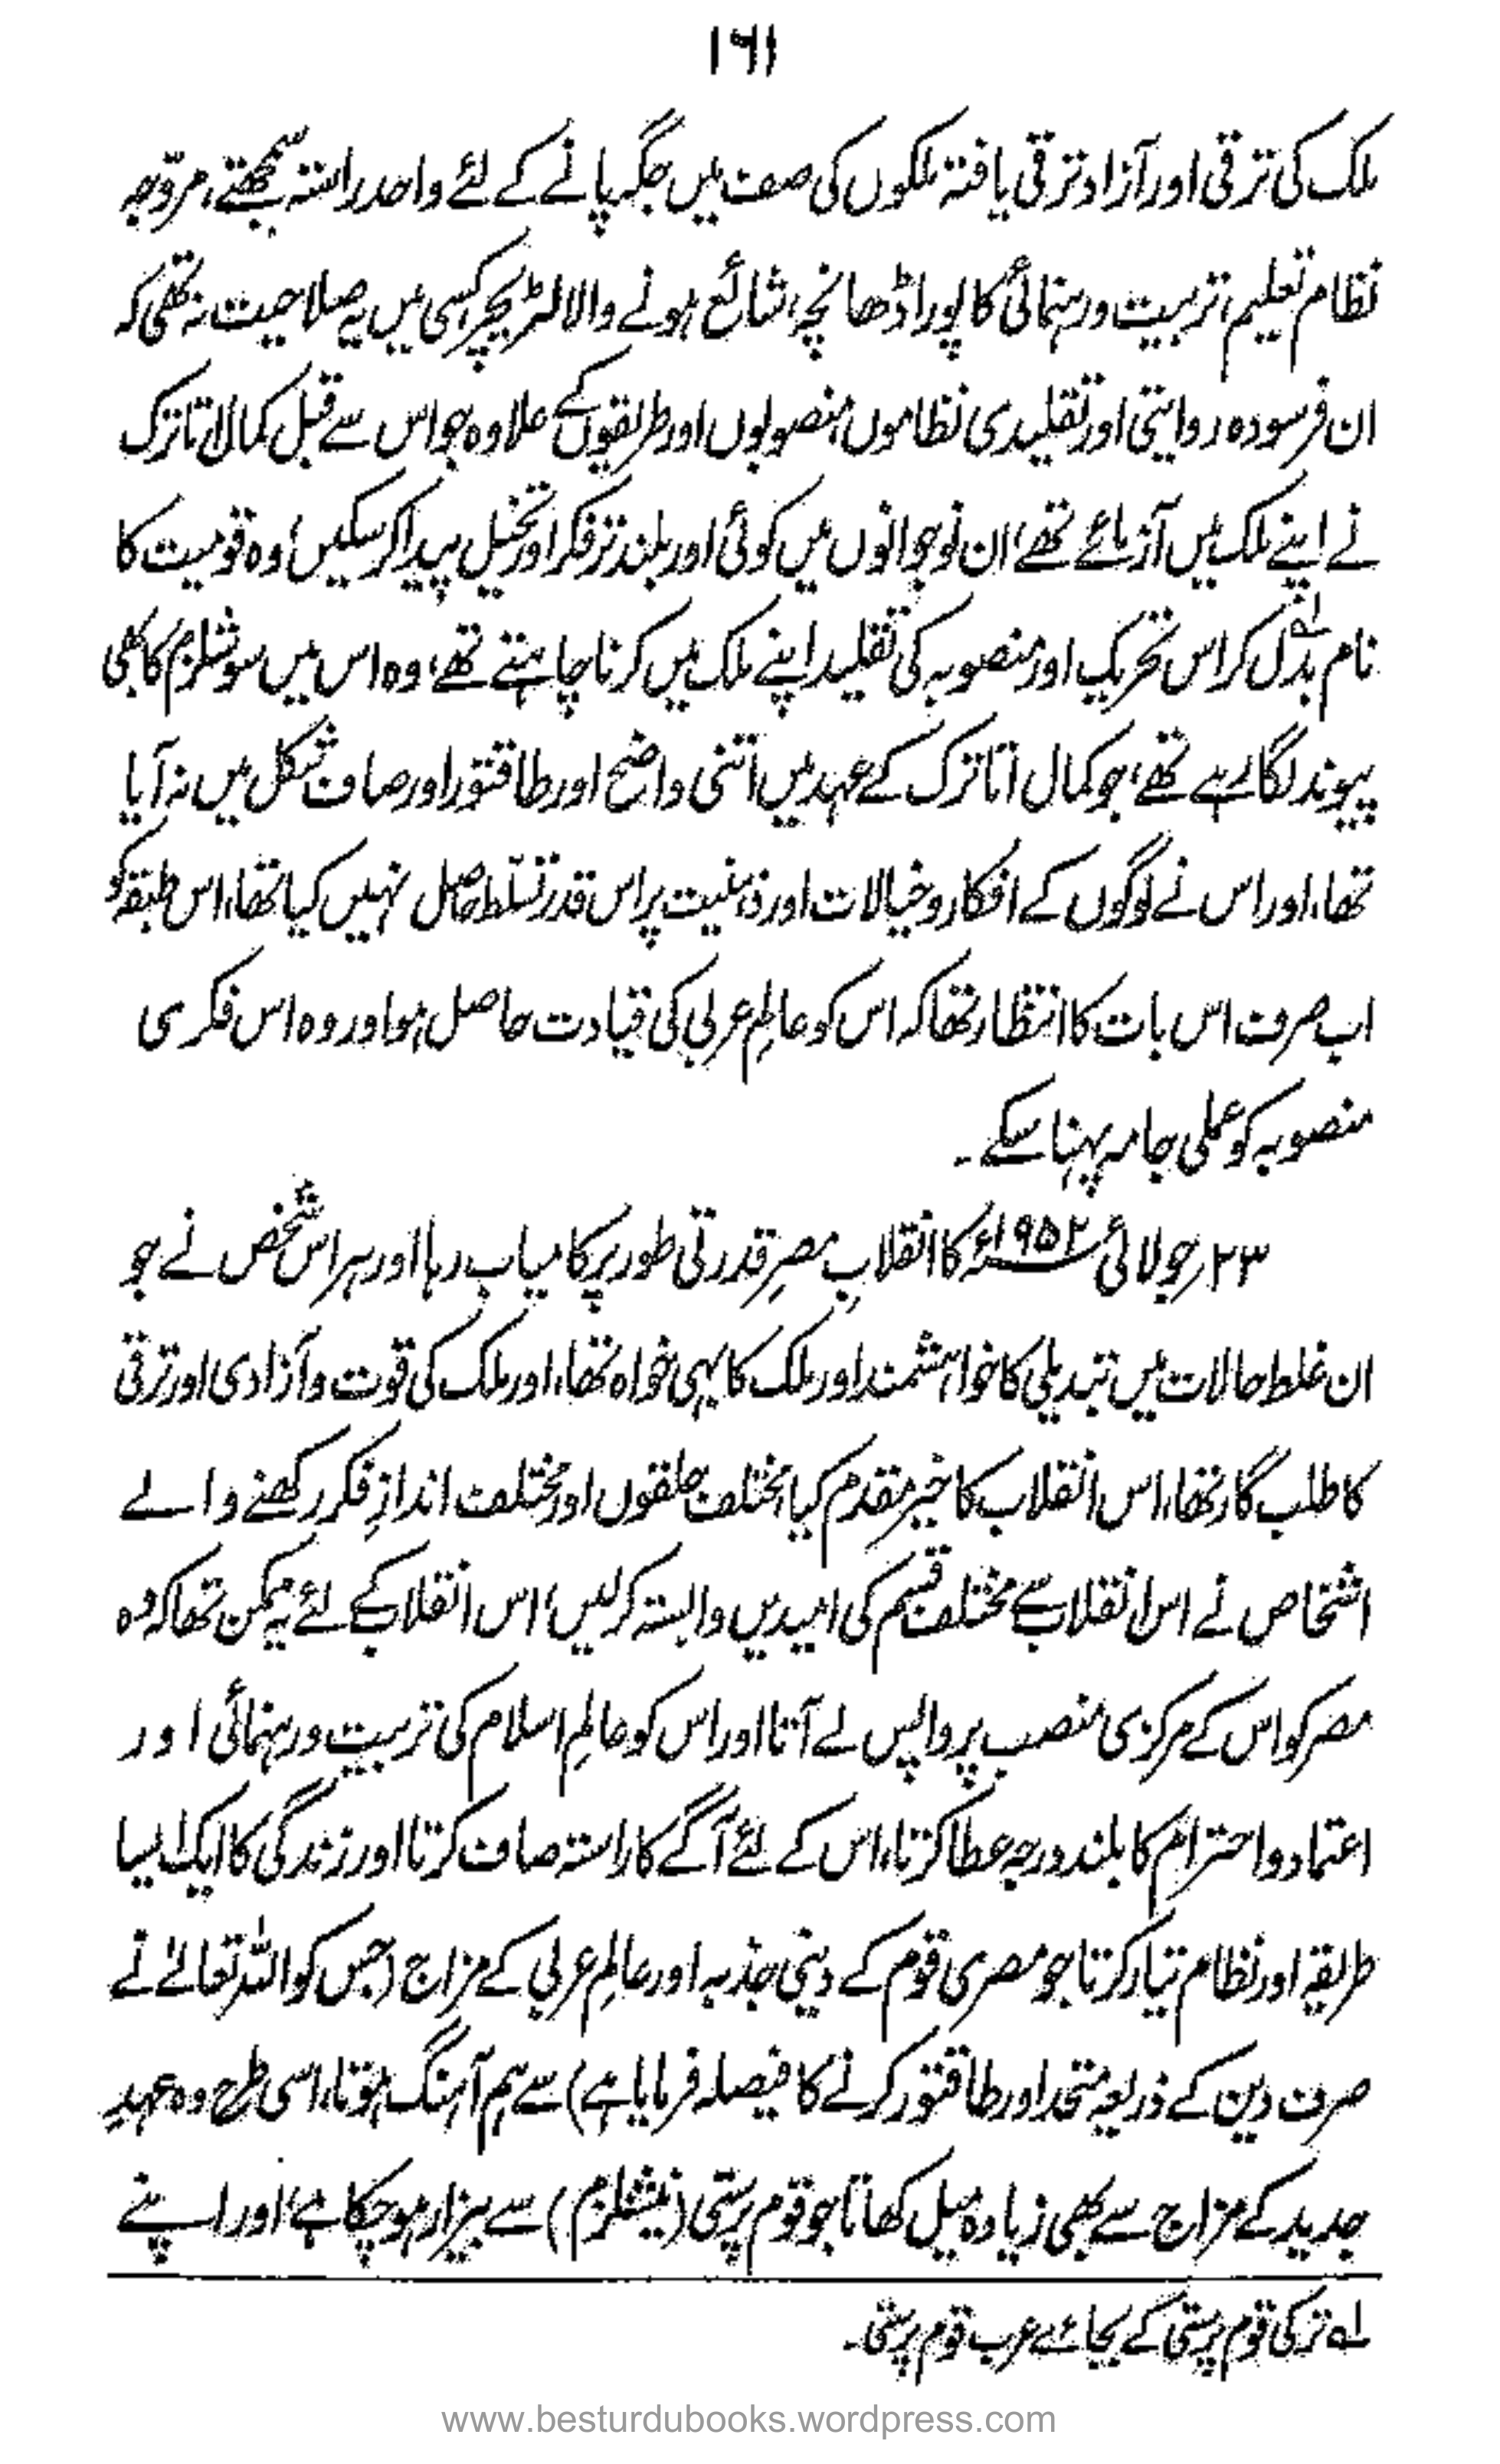 ۱۶۱
ملک کی ترقی اور آزاد ترقی یافتہ ملکوں کی صف میں جگہ پانے کے لئے واحد راستہ سمجھتے، مروّجہ
نظام تعلیم، تربیت ورہنمائی کا پورا ڈھانچہ، شائع ہونے والا لٹریچر، کسی میں یہ صلاحیت نہ تھی کہ
ان فرسودہ روایتی اور تقلیدی نظاموں، منصوبوں اور طریقوں کے علاوہ جو اس سے قبل کمال اتاترک
نے اپنے ملک میں آزمائے تھے، ان نوجوانوں میں کوئی اور بلند تر فکر اور تخیل پیدا کر سکیں، وہ قومیت کا
نام بدل کر لہ اس تحریک اور منصوبہ کی تقلید اپنے ملک میں کرنا چاہتے تھے، وہ اس میں سوشلزم کا بھی
پیوند لگا رہے تھے، جو کمال اتاترک کے عہد میں اتنی واضح اور طاقتور اور صاف شکل میں نہ آیا
تھا، اور اس نے لوگوں کے افکار و خیالات اور ذہنیت پر اس قدر تسلّط حاصل نہیں کیا تھا، اس طبقہ کو
اب صرف اس بات کا انتظار تھا کہ اس کو عالمِ عربی کی قیادت حاصل ہو اور وہ اس فکری
منصوبہ کو عملی جامہ پہنا سکے۔
۲۳؍ جولائی ۱۹۵۲ء کا انقلابِ مصر قدرتی طور پر کامیاب رہا اور ہر اس شخص نے جو
ان غلط حالات میں تبدیلی کا خواہشمند اور ملک کا بہی خواہ تھا، اور ملک کی قوت و آزادی اور ترقی
کا طلب گار تھا، اس انقلاب کا خیر مقدم کیا، مختلف حلقوں اور مختلف اندازِ فکر رکھنے والے
اشخاص نے اس انقلاب سے مختلف قسم کی امیدیں وابستہ کر لیں، اس انقلاب کے لئے یہ ممکن تھا کہ وہ
مصر کو اس کے مرکزی منصب پر واپس لے آتا اور اس کو عالمِ اسلام کی تربیت ورہنمائی اور
اعتماد و احترام کا بلند درجہ عطا کرتا، اس کے لئے آگے کا راستہ صاف کرتا اور زندگی کا ایک ایسا
طریقہ اور نظام تیار کرتا جو مصری قوم کے دینی جذبہ اور عالمِ عربی کے مزاج (جس کو اللہ تعالےٰ نے
صرف دین کے ذریعہ متحد اور طاقتور کرنے کا فیصلہ فرمایا ہے) سے ہم آہنگ ہوتا، اسی طرح وہ عہدِ
جدید کے مزاج سے بھی زیادہ میل کھاتا جو قوم پرستی (نیشنلزم) سے بیزار ہو چکا ہے، اور اپنے
لہ ترکی قوم پرستی کے بجائے عرب قوم پرستی۔
www.besturdubooks.wordpress.com